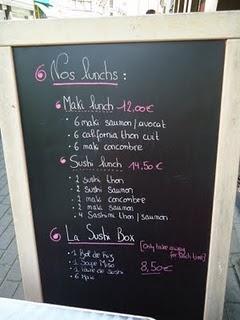 Nos lunchs :
Maki lunch 12,00€
• 6 maki saumon/avocat
• 6 california thon cuit
• 6 maki concombre
Sushi lunch 14,50€
• 2 sushi thon
• 2 sushi saumon
• 2 maki concombre
• 2 maki saumon
• 4 Sashimi thon/saumon
La Sushi Box
[Only take away
• 1 Bol de Riz
for lunch time]
• 1 Soupe Miso
8,50€
• 1 de sushi
• 6 Maki